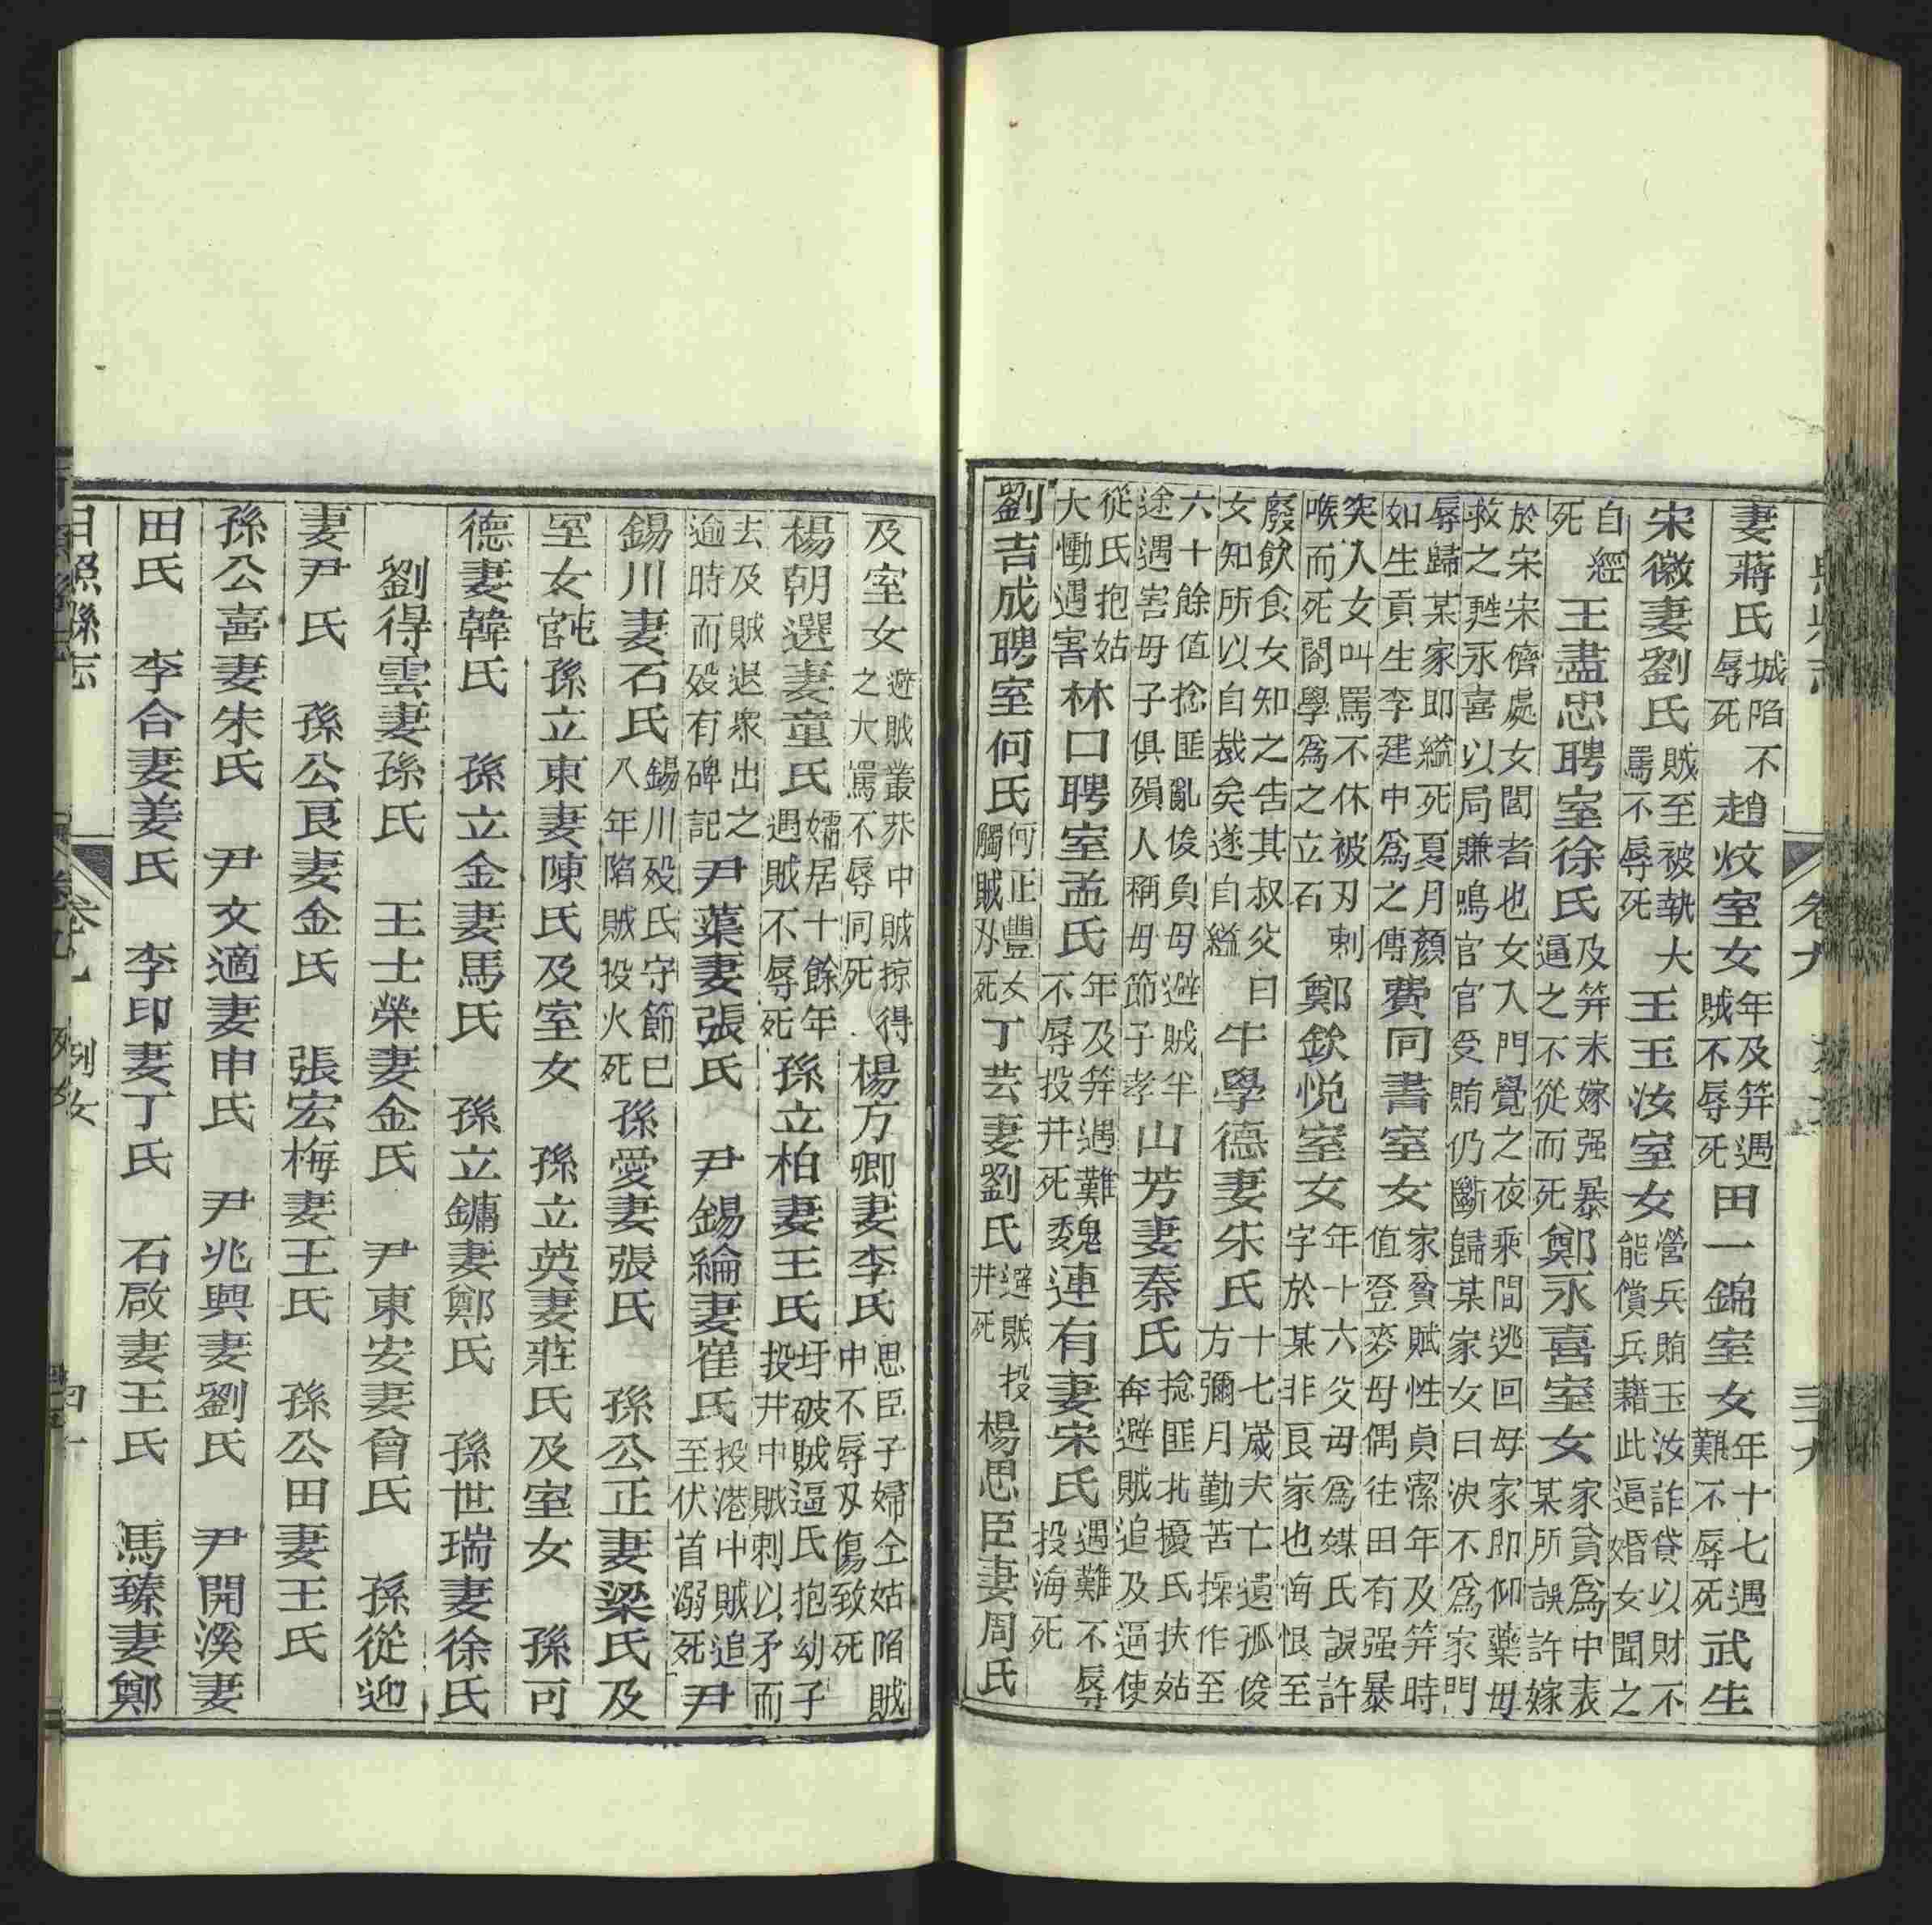 妻蔣氏城陷不辱死 趙炆室女年及笄遇賊不辱死田一錦室女年十七遇難不辱死武生
宋徽妻劉氏賊至被執大罵不辱死王玉汝室女營兵賄玉汝詐貸以財不能償兵藉此逼婚女聞之
自經死王盡忠聘室徐氏及笄未嫁强暴逼之不從而死鄭永喜室女家貧爲中表某所誤許嫁
於宋宋儕處女閭者也女入門覺之夜乘間逃回母家即仰藥母救之甦永喜以局賺鳴官官受賄仍斷歸某家女曰決不爲家門
辱歸某家即縊死夏月顏如生貢生李建中爲之傳費同書室女家貧賦性貞潔年及笄時值登麥母偶往田有强暴
突入女叫罵不休被刃刺喉而死閤學爲之立石鄭欽悅室女年十六父母爲媒氏誤許字於某非良家也悔恨至
廢飲食女知之告其叔父曰女知所以自裁矣遂自縊牛學德妻朱氏十七歲夫亡遺孤俊方彌月勤苦操作至
六十餘值捻匪亂俊負母避賊半途遇害母子俱殞人稱母節子孝山芳妻秦氏捻匪北擾氏扶姑奔避賊追及逼使
從氏抱姑大慟遇害林口聘室孟氏年及笄遇難不辱投井死魏連有妻宋氏遇難不辱投海死
劉吉成聘室何氏何正豐女觸賊刃死丁芸妻劉氏避賊投井死楊思臣妻周氏
及室女避賊叢莽中賊掠得之大罵不辱同死楊方卿妻李氏思臣子婦仝姑陷賊中不辱刃傷致死
楊朝選妻童氏孀居十餘年遇賊不辱死孫立柏妻王氏圩破賊逼氏抱幼子投井中賊刺以矛而
去及賊退衆出之逾時而殁有碑記尹葉妻張氏 尹錫綸妻崔氏投港中賊追至伏首溺死尹
錫川妻石氏錫川殁氏守節已八年陷賊投火死孫愛妻張氏 孫公正妻梁氏及
室女官 孫立東妻陳氏及室女 孫立英妻莊氏及室女 孫可
德妻韓氏 孫立金妻馬氏 孫立鏞妻鄭氏 孫世瑞妻徐氏
劉得雲妻孫氏 王士榮妻金氏 尹東安妻曾氏 孫從迎
妻尹氏 孫公良妻金氏 張宏梅妻王氏 孫公田妻王氏
孫公喜妻朱氏 尹文適妻申氏 尹兆興妻劉氏 尹開溪妻
田氏 李合妻姜氏 李印妻丁氏 石啟妻王氏 馬臻妻鄭
日照縣志 卷九 列女 四十